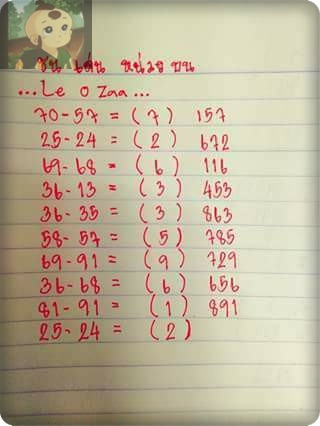 ชน เด่น หน่วย บน
...Le O Zaa...
70-57 = (7) 157
25-24 = (2) 672
69-68 = (6) 116
36-13 = (3) 453
36-35 = (3) 863
58-57 = (5) 785
69-91 = (9) 729
36-68 = (6) 656
81-91 = (1) 891
25-24 = (2)